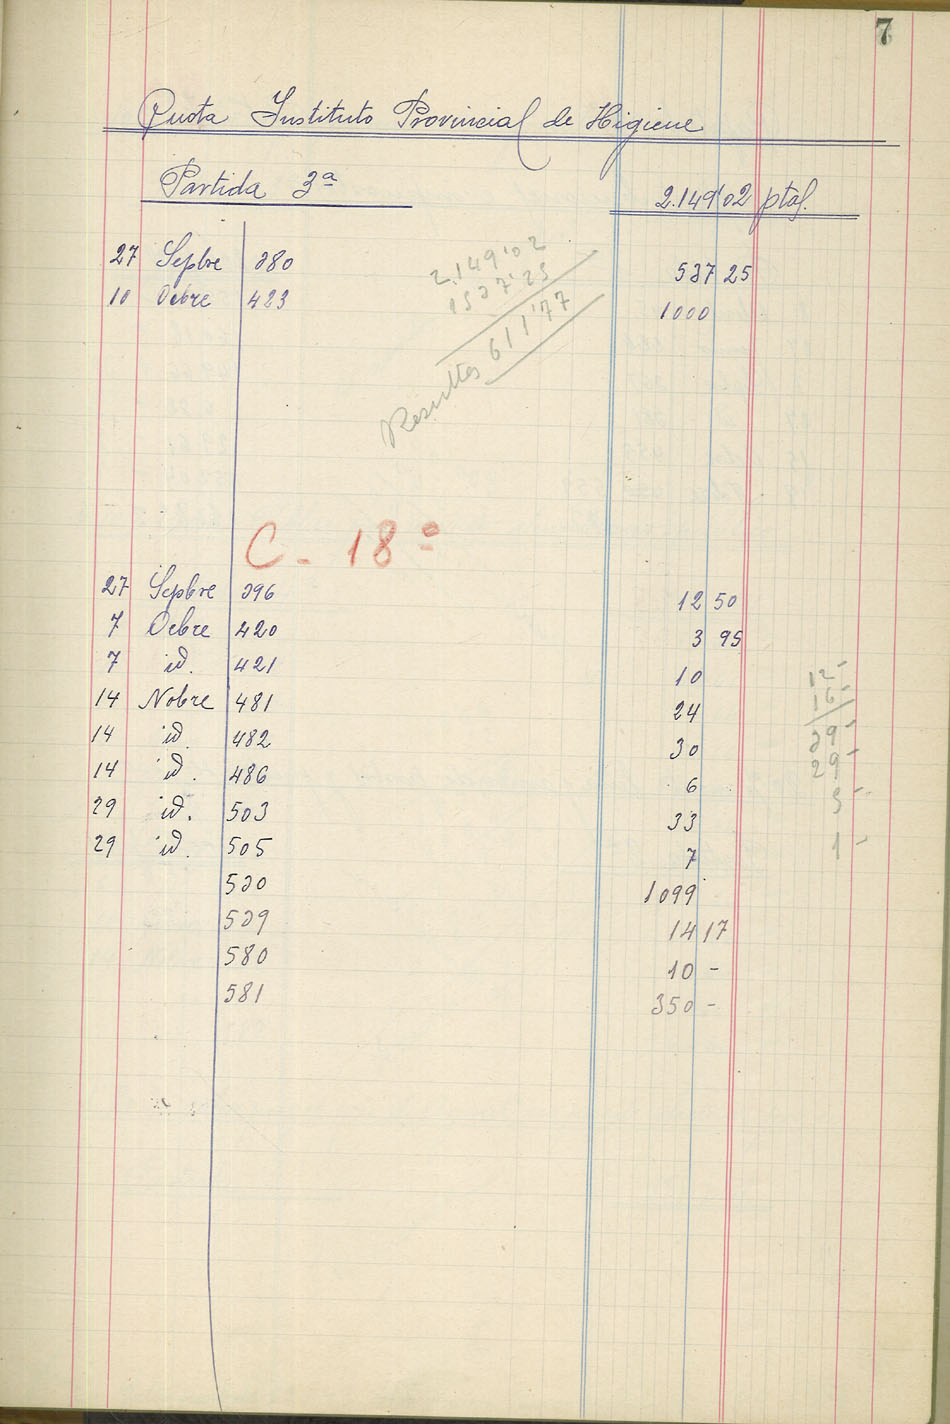 7
Quota Instituto Provincial de Higiene
Partida 3ª 2.149'02 ptas.
27 Sepbre 380 537 25
10 Ocbre 423 1000
2.149'02
1537'25
Resultas 611'77
C - 18º
27 Sepbre 396 12 50
7 Ocbre 420 3 95
7 id. 421 10
14 Nobre 481 24
14 id. 482 30
14 id. 486 6
29 id. 503 33
29 id. 505 7
530 1099
539 14 17
580 10 -
581 350 -
12
16
39
29
3
1